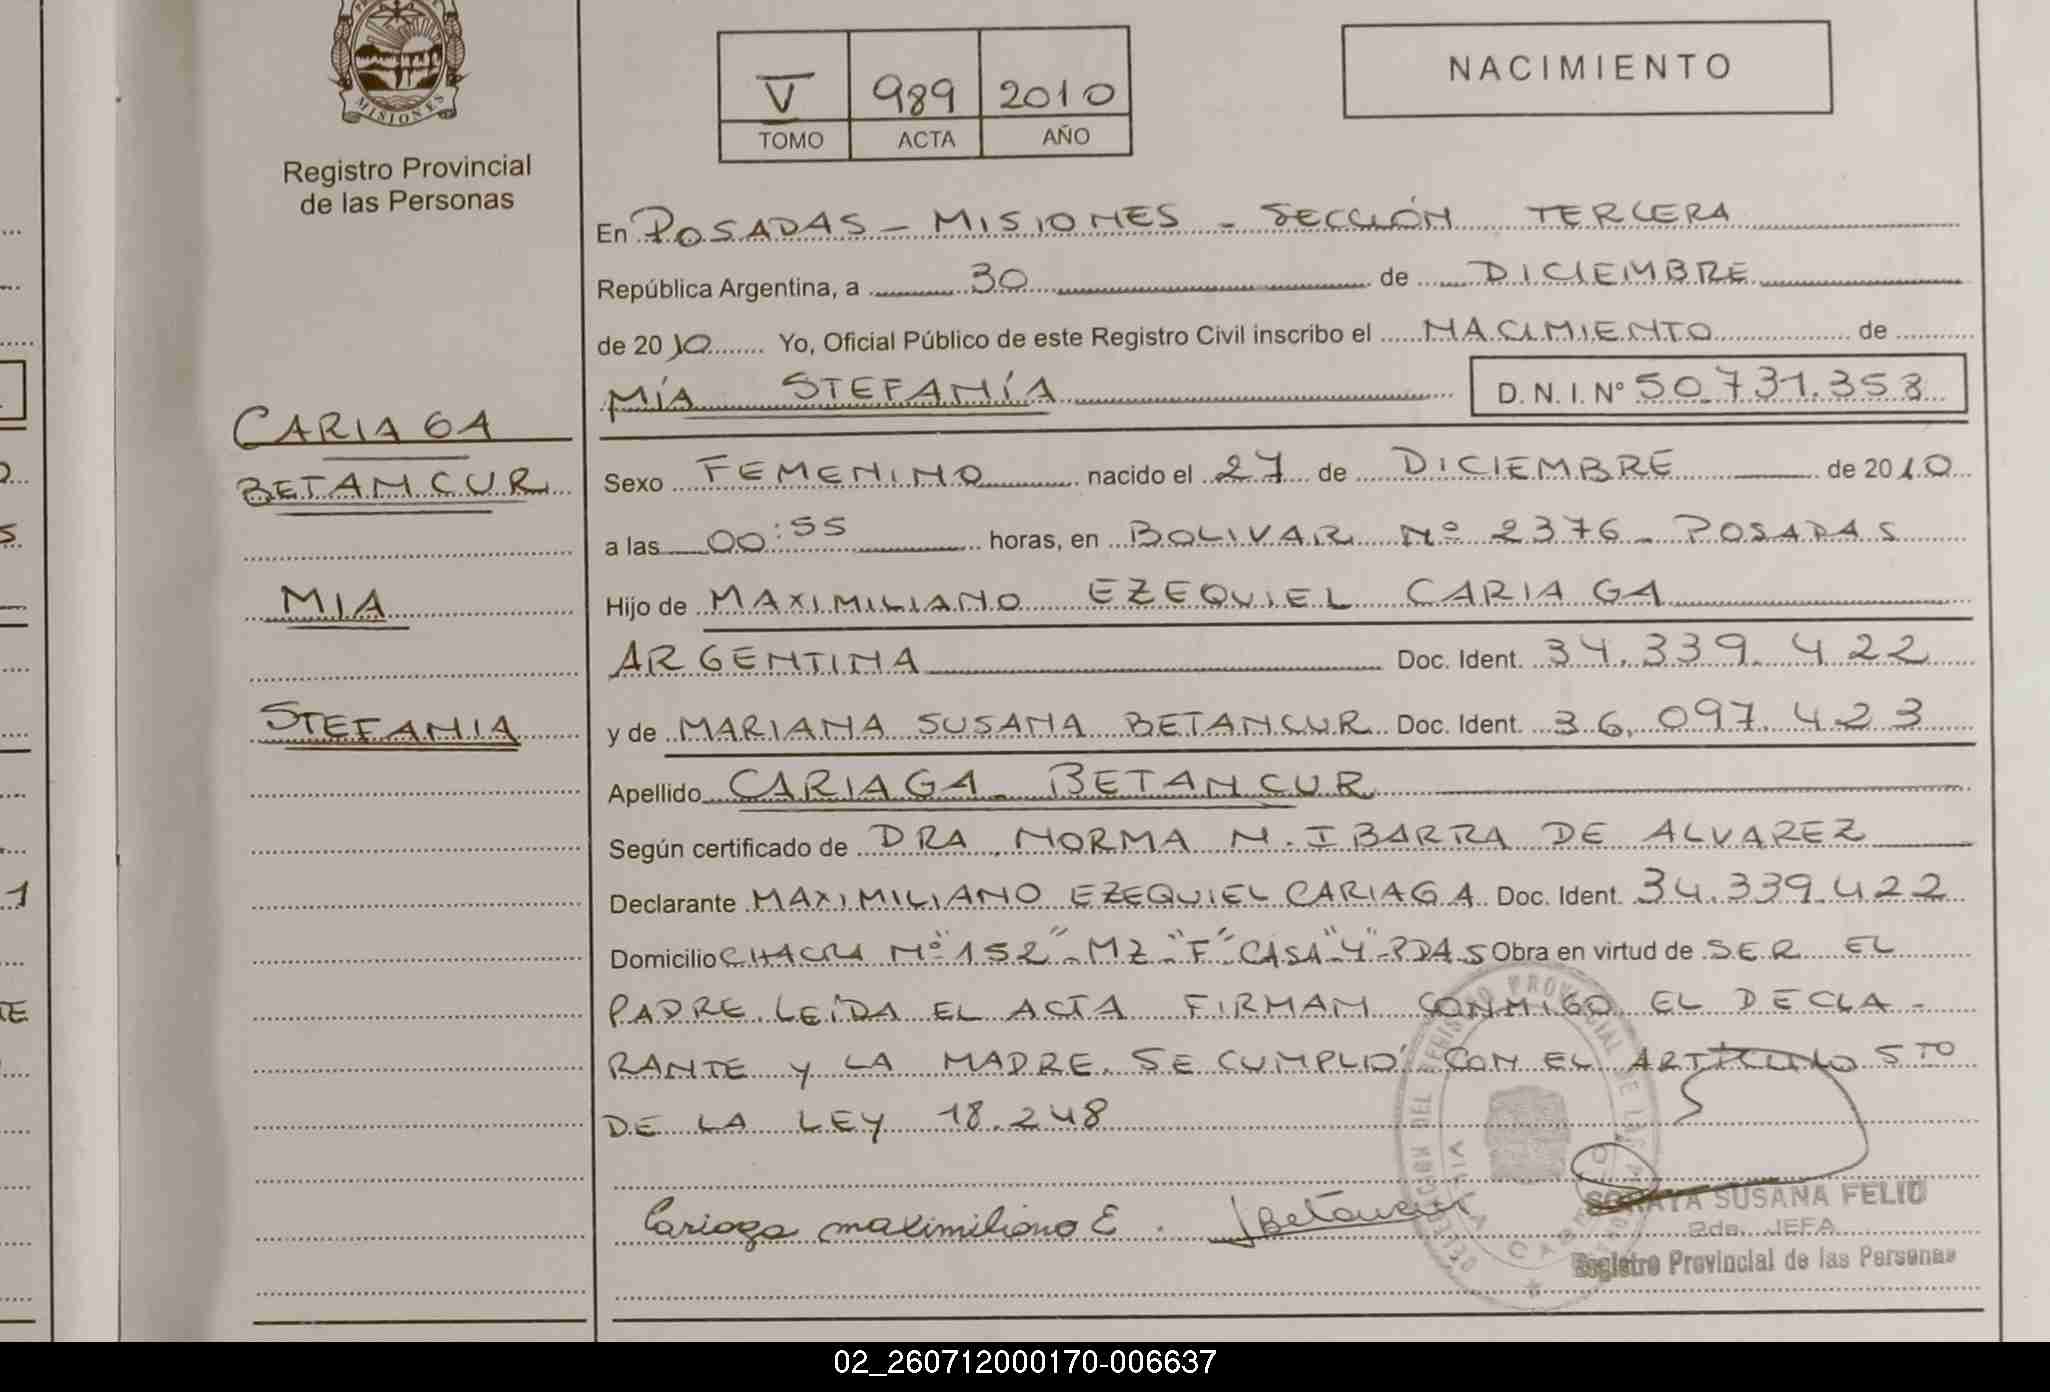 MISIONES
Registro Provincial
de las Personas
V 989 2010
TOMO ACTA AÑO
NACIMIENTO
En POSADAS - MISIONES - SECCIÓN TERCERA
República Argentina, a 30 de DICIEMBRE
de 2010 Yo, Oficial Público de este Registro Civil inscribo el NACIMIENTO de
MÍA STEFANÍA D. N. I. Nº 50.731.353
CARIAGA
BETANCUR
MIA
STEFANIA
Sexo FEMENINO nacido el 27 de DICIEMBRE de 2010
a las 00:55 horas, en BOLIVAR Nº 2376 - POSADAS
Hijo de MAXIMILIANO EZEQUIEL CARIAGA
ARGENTINA Doc. Ident. 34.339.422
y de MARIANA SUSANA BETANCUR Doc. Ident. 36.097.423
Apellido CARIAGA BETANCUR
Según certificado de DRA. NORMA N. IBARRA DE ALVAREZ
Declarante MAXIMILIANO EZEQUIEL CARIAGA Doc. Ident. 34.339.422
Domicilio CHACRA Nº "152" - MZ "F" CASA "4" - PDAS Obra en virtud de SER EL
PADRE. LEÍDA EL ACTA FIRMAN CONMIGO EL DECLA-
RANTE Y LA MADRE. SE CUMPLIÓ CON EL ARTÍCULO 5TO
DE LA LEY 18.248
Cariaga maximiliano E. Betancur
SORAYA SUSANA FELIU
2da. JEFA
Registro Provincial de las Personas
02_260712000170-006637